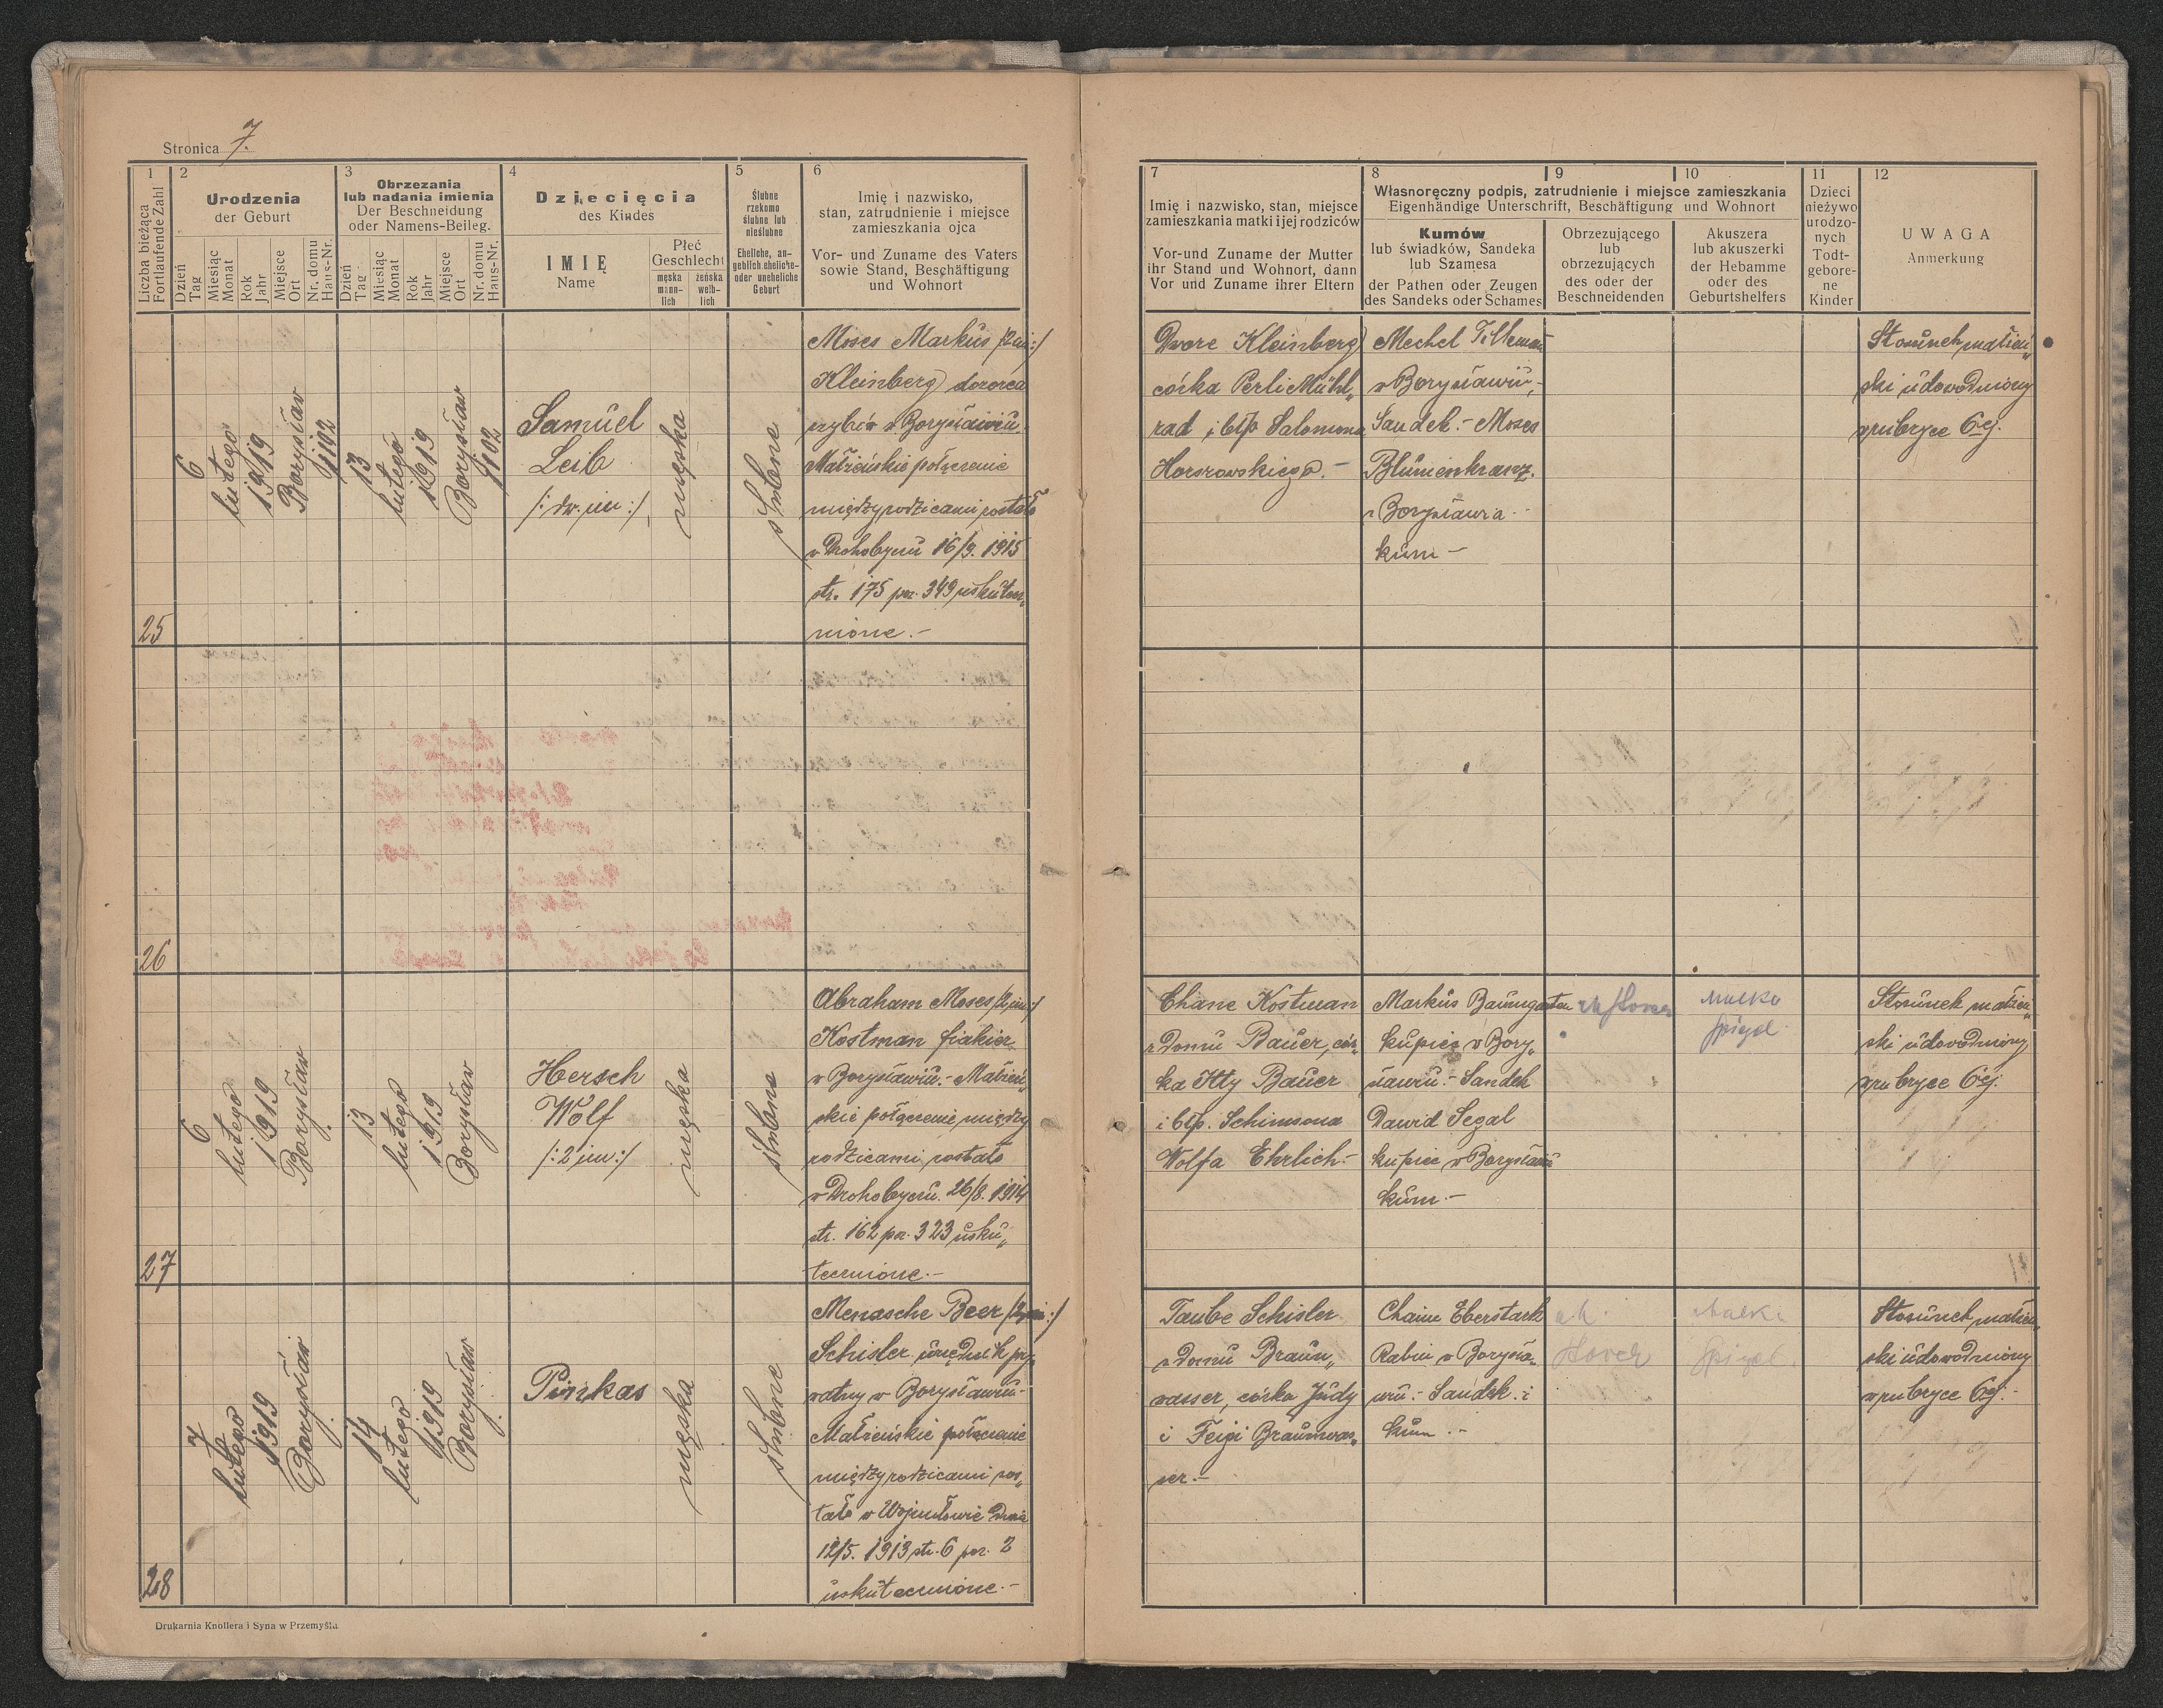 Stronica 7.
1
Liczba bieżąca
Fortlaufende Zahl
2
Urodzenia
der Geburt
Dzień
Tag
Miesiąc
Monat
Rok
Jahr
Miejsce
Ort
Nr. domu
Haus-Nr.
3
Obrzezania
lub nadania imienia
Der Beschneidung
oder Namens-Beileg.
Dzień
Tag
Miesiąc
Monat
Rok
Jahr
Miejsce
Ort
Nr. domu
Haus-Nr.
4
Dziecięcia
des Kindes
IMIĘ
Name
Płeć
Geschlecht
męska
männ-
lich
żeńska
weib-
lich
5
Ślubne
rzekomo
ślubne lub
nieślubne
Eheliche, an-
geblich eheliche-
oder uneheliche
Geburt
6
Imię i nazwisko,
stan, zatrudnienie i miejsce
zamieszkania ojca
Vor- und Zuname des Vaters
sowie Stand, Beschäftigung
und Wohnort
7
Imię i nazwisko, stan, miejsce
zamieszkania matki i jej rodziców
Vor-und Zuname der Mutter
ihr Stand und Wohnort, dann
Vor und Zuname ihrer Eltern
8
9
10
Własnoręczny podpis, zatrudnienie i miejsce zamieszkania
Eigenhändige Unterschrift, Beschäftigung und Wohnort
Kumów
lub świadków, Sandeka
lub Szamesa
der Pathen oder Zeugen
des Sandeks oder Schames
Obrzezującego
lub
obrzezujących
des oder der
Beschneidenden
Akuszera
lub akuszerki
der Hebamme
oder des
Geburtshelfers
11
Dzieci
nieżywo
urodzo-
nych
Todt-
gebore-
ne
Kinder
12
UWAGA
Anmerkung
25
6
lutego
1919
Borysław
1102
13
lutego
1919
Borysław
1102
Samuel
Leib
/: dw. im :/
męska
ślubne
Moses Markus /2 im:/
Kleinberg dozorca
szybów w Borysławiu.
Małżeńskie połączenie
między rodzicami zostało
w Drohobyczu 16/9. 1915
str. 175 poz. 349 uskutecz„
nione.-
Dwore Kleinberg
córka Perli Mühl„
rad i błp Salomona
Horszowskiego.-
Mechel
w Borysławiu,-
Sandek.- Moses
Blumenkranz.
z Borysławia.-
kum -
Stosunek małżeń„
ski udowodniony
w rubryce 6ej.
26
27
6
lutego
1919
Borysław
13
lutego
1919
Borysław
Hersch
Wolf
/: 2 im :/
męska
ślubne
Abraham Moses /2 im:/
Kostman fiakier
w Borysławiu.- Małżeń„
skie połączenie między
rodzicami zostało
w Drohobyczu. 26/8. 1914
str. 162 poz. 323 usku„
tecznione.-
Chane Kostman
z domu Bauer, cór„
ka Itty Bauer
i błp. Schimsona
Wolfa Ehrlich.-
Markus Baumgarten
kupiec w Bory„
sławiu.- Sandek
Dawid Segal
kupiec w Borysławiu
kum.-
Malka
Spigel
Stosunek małżeń„
ski udowodniony
w rubryce 6ej.
28
7
lutego
1919
Borysław
14
lutego
1919
Borysław
Pinkas
męska
ślubne
Menasche Beer /2 im:/
Schisler urzędnik pry„
watny w Borysławiu.-
Małżeńskie połączenie
między rodzicami zos„
tało w Wojniłowie dnia
12/5. 1913 str. 6 poz. 2
uskutecznione.-
Taube Schisler
z domu Braun„
wasser, córka Judy
i Feigi Braunwas„
ser.-
Chaim Eberstark
Rabin w Borysła„
wiu.- Sandek. i
kum.-
Malka
Spigel
Stosunek małżeń„
ski udowodniony
w rubryce 6ej.-
Drukarnia Knollera i Syna w Przemyślu